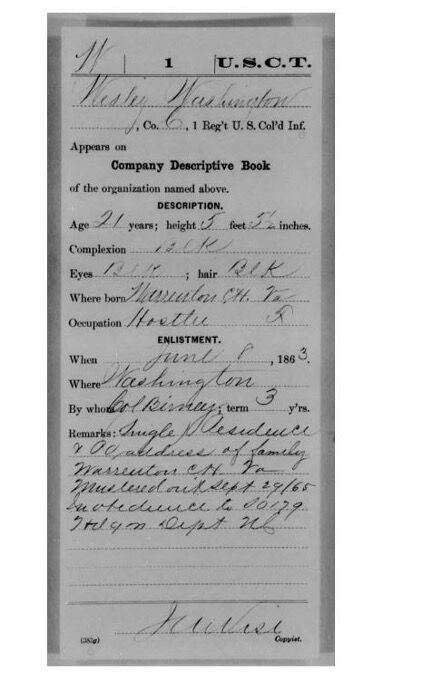 W | 1 | U.S.C.T.
Wesley Washington
, Co. C, 1 Reg't U. S. Col'd Inf.
Appears on
Company Descriptive Book
of the organization named above.
DESCRIPTION.
Age 21 years; height 5 feet 5½ inches.
Complexion Blk
Eyes Blk ; hair Blk
Where born Warrenton CH. Va
Occupation Hostler
ENLISTMENT.
When June 8, 1863.
Where Washington
By whom Col Birney; term 3 y'rs.
Remarks: Single Residence
& PO address of family
Warrenton CH Va
Mustered out Sept 29/65
in obedience to SO 179
Hdqrs Dept NC
(383g) Copyist.